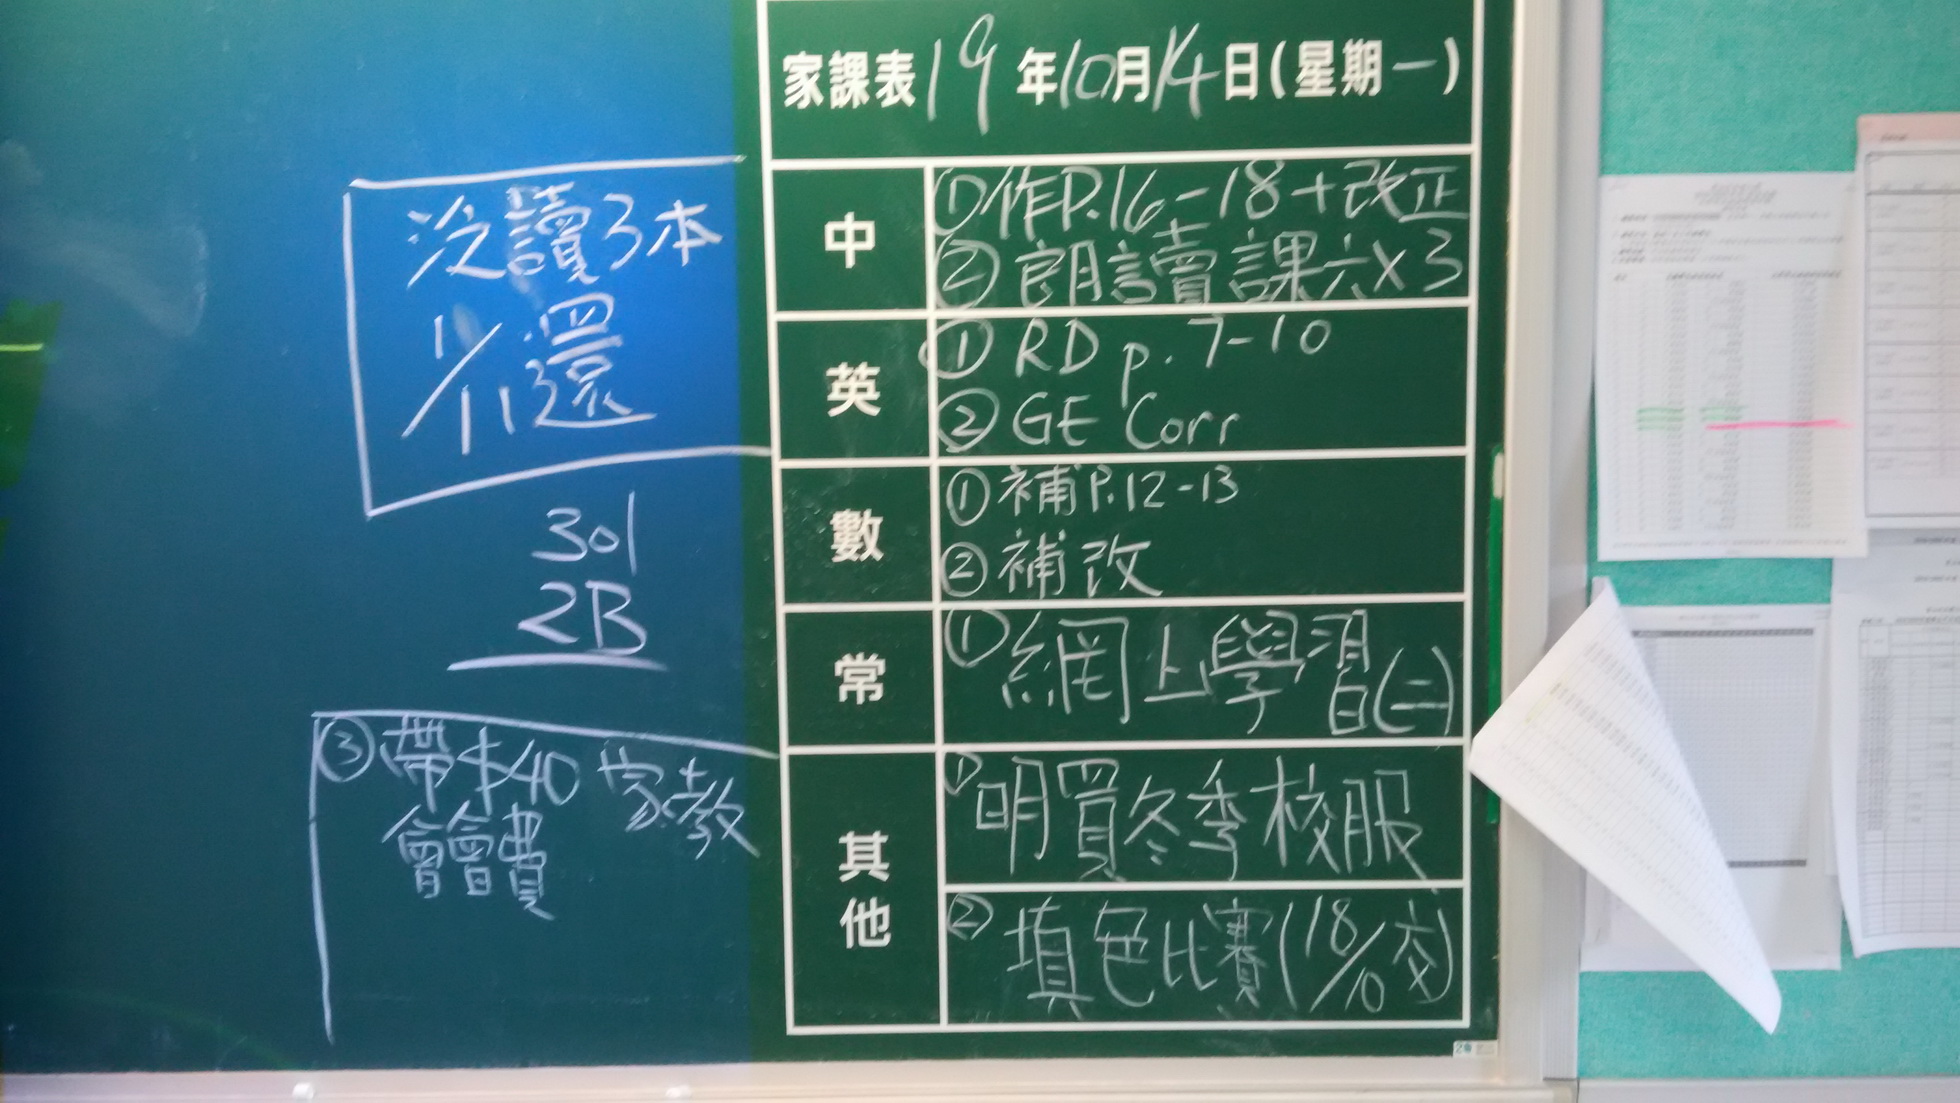 家課表 19年10月14日(星期一)
中
① 作P.16-18+改正
② 朗讀課六x3
英
① RD p. 7-10
② GE Corr
數
① 補P.12-13
② 補改
常
① 網上學習(二)
其他
① 明買冬季校服
② 填色比賽(18/10交)
③ 帶$40 家教
會會費
泛讀3本
1/11還
301
2B